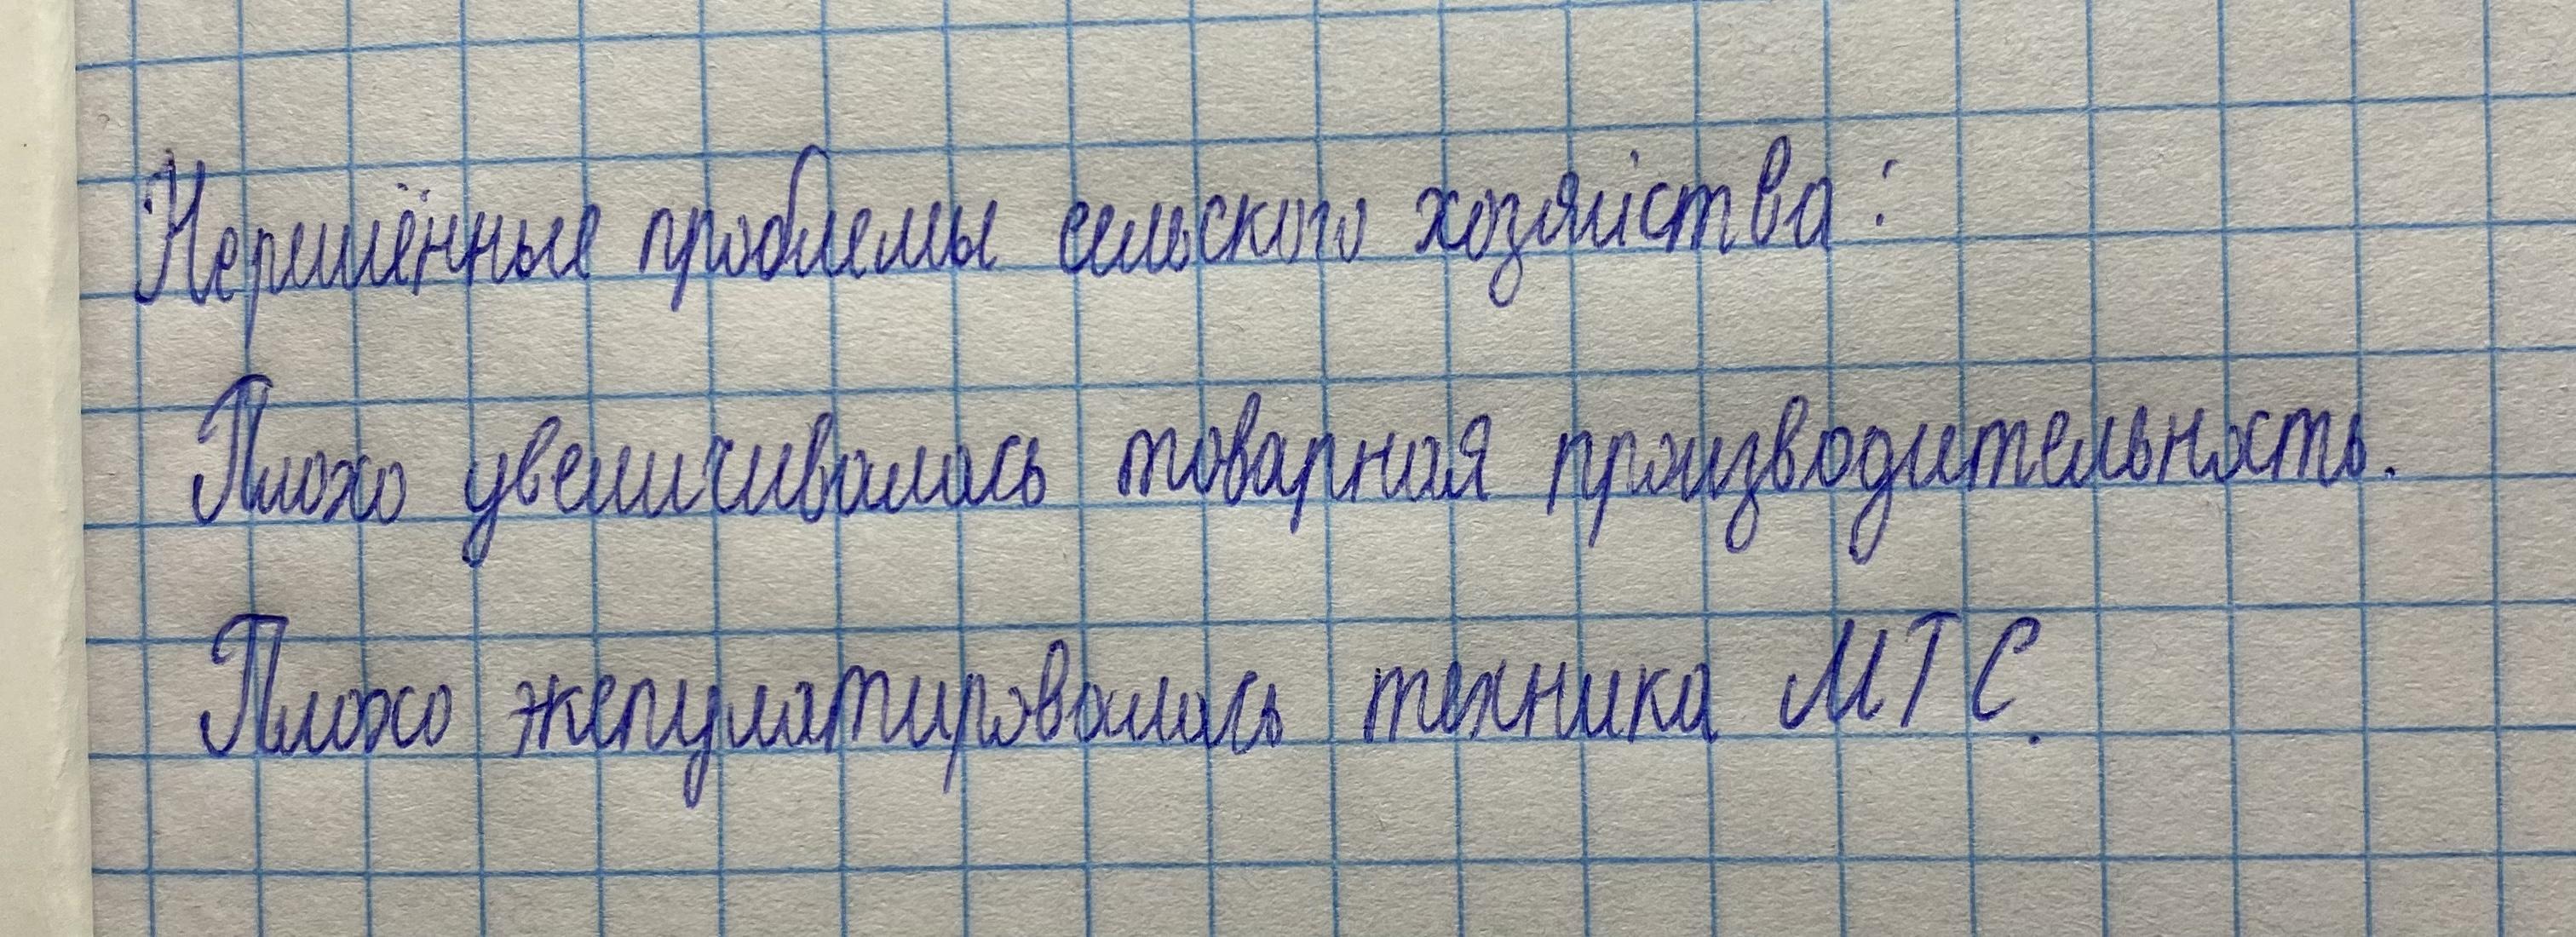 Нерешённые проблемы сельского хозяйства:
Плохо увеличивалась товарная производительность.
Плохо эксплуатировалась техника МТС.